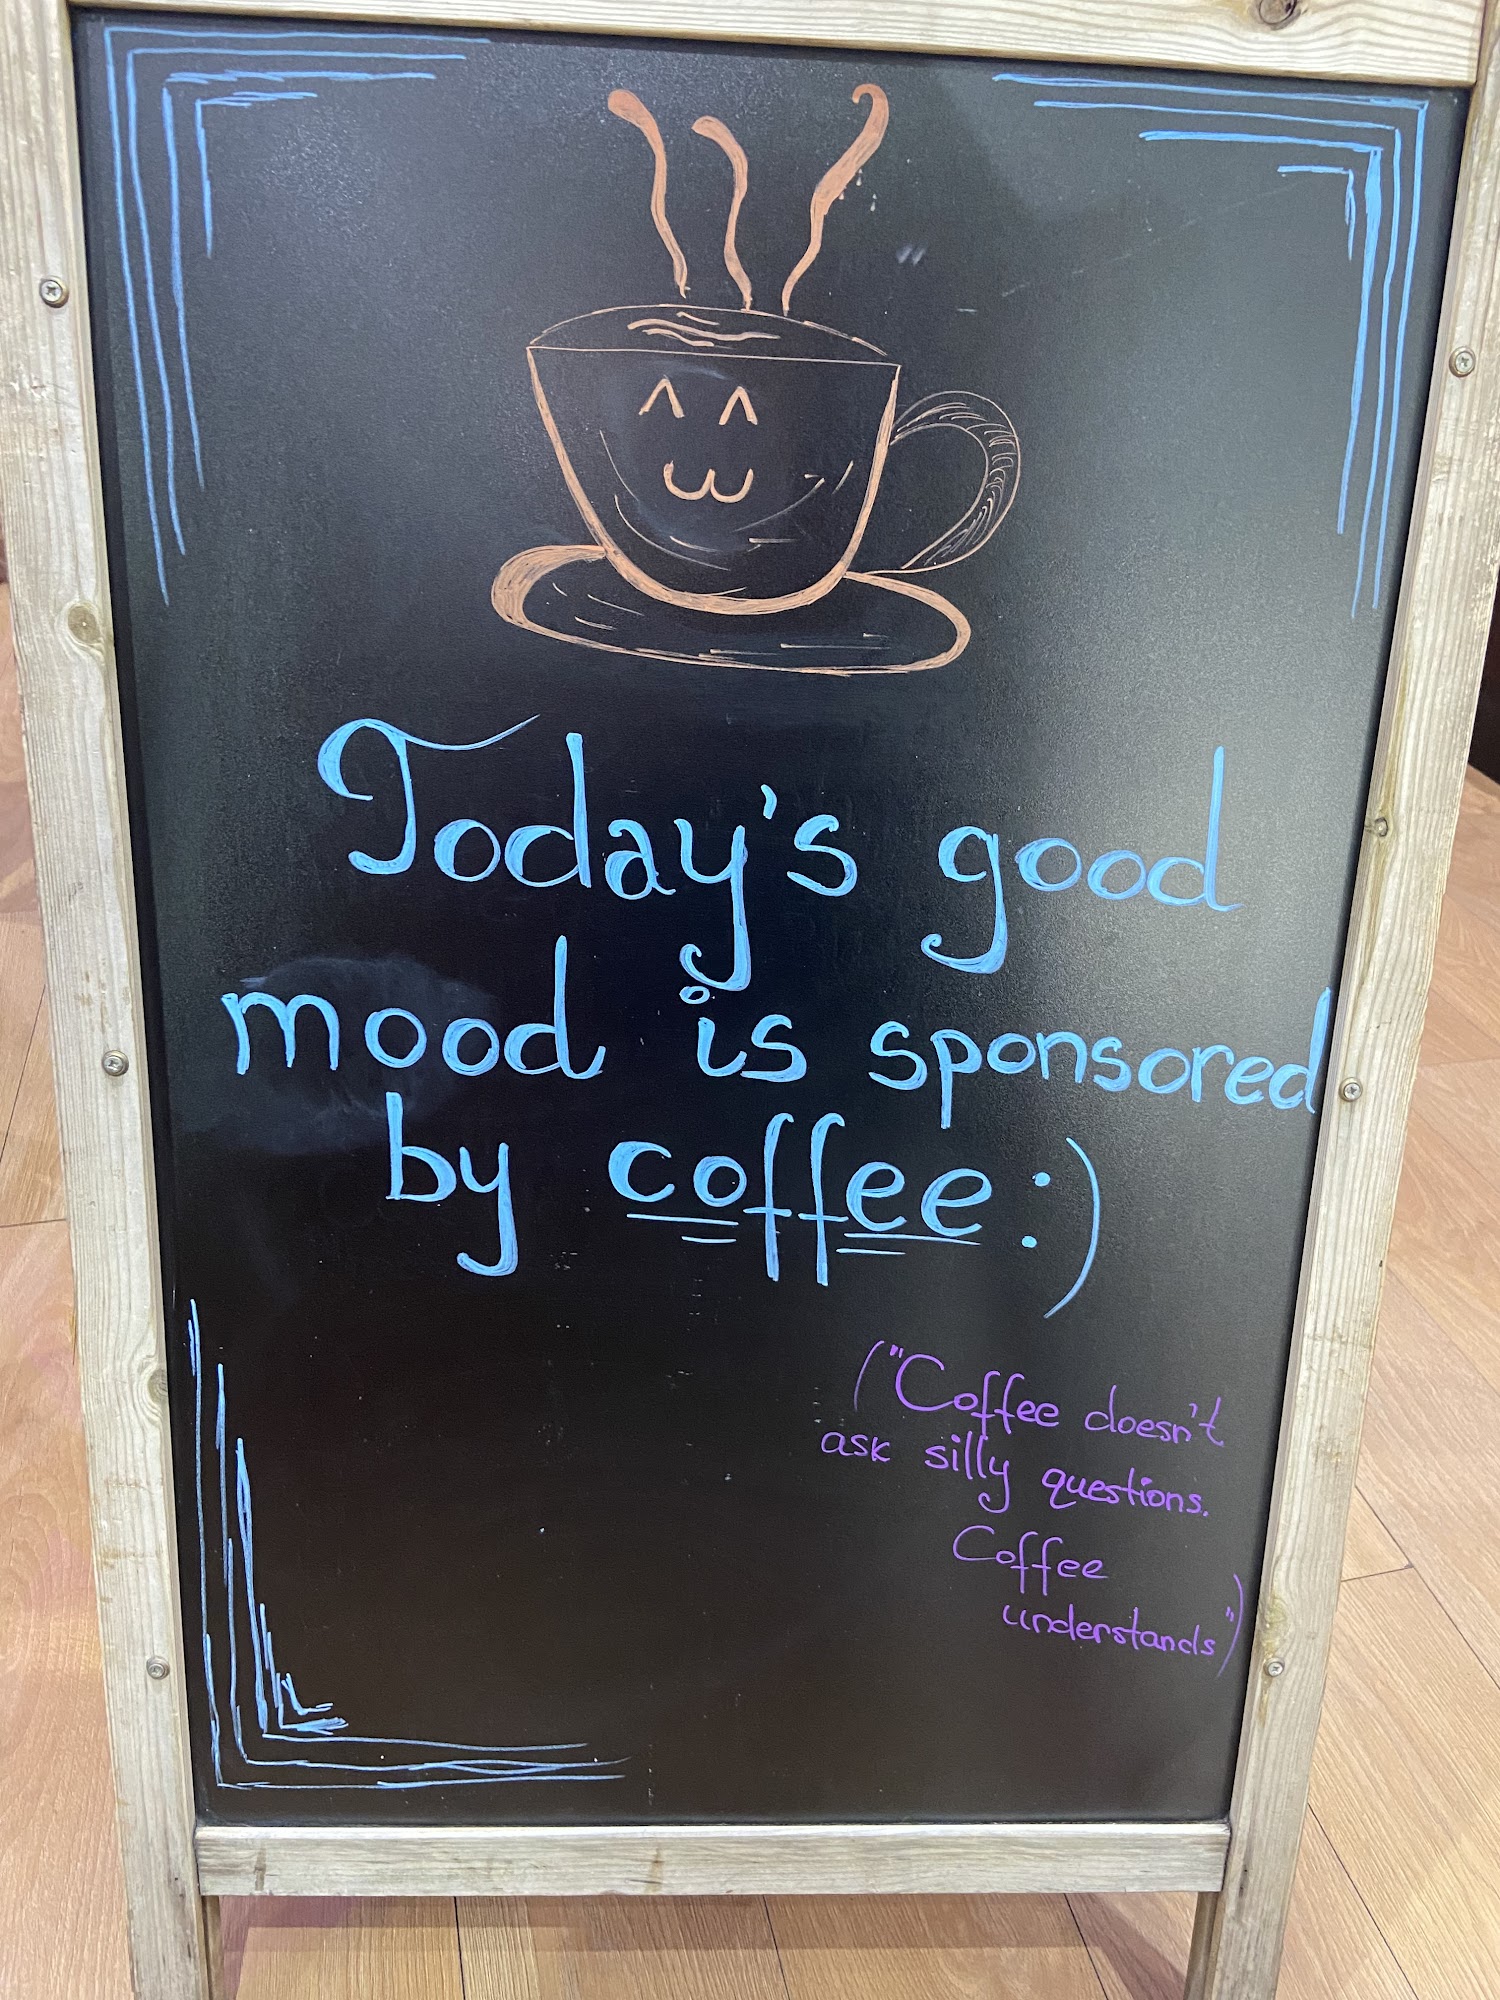 Today's good
mood is sponsored
by coffee :)
("Coffee doesn't
ask silly questions.
Coffee
understands")